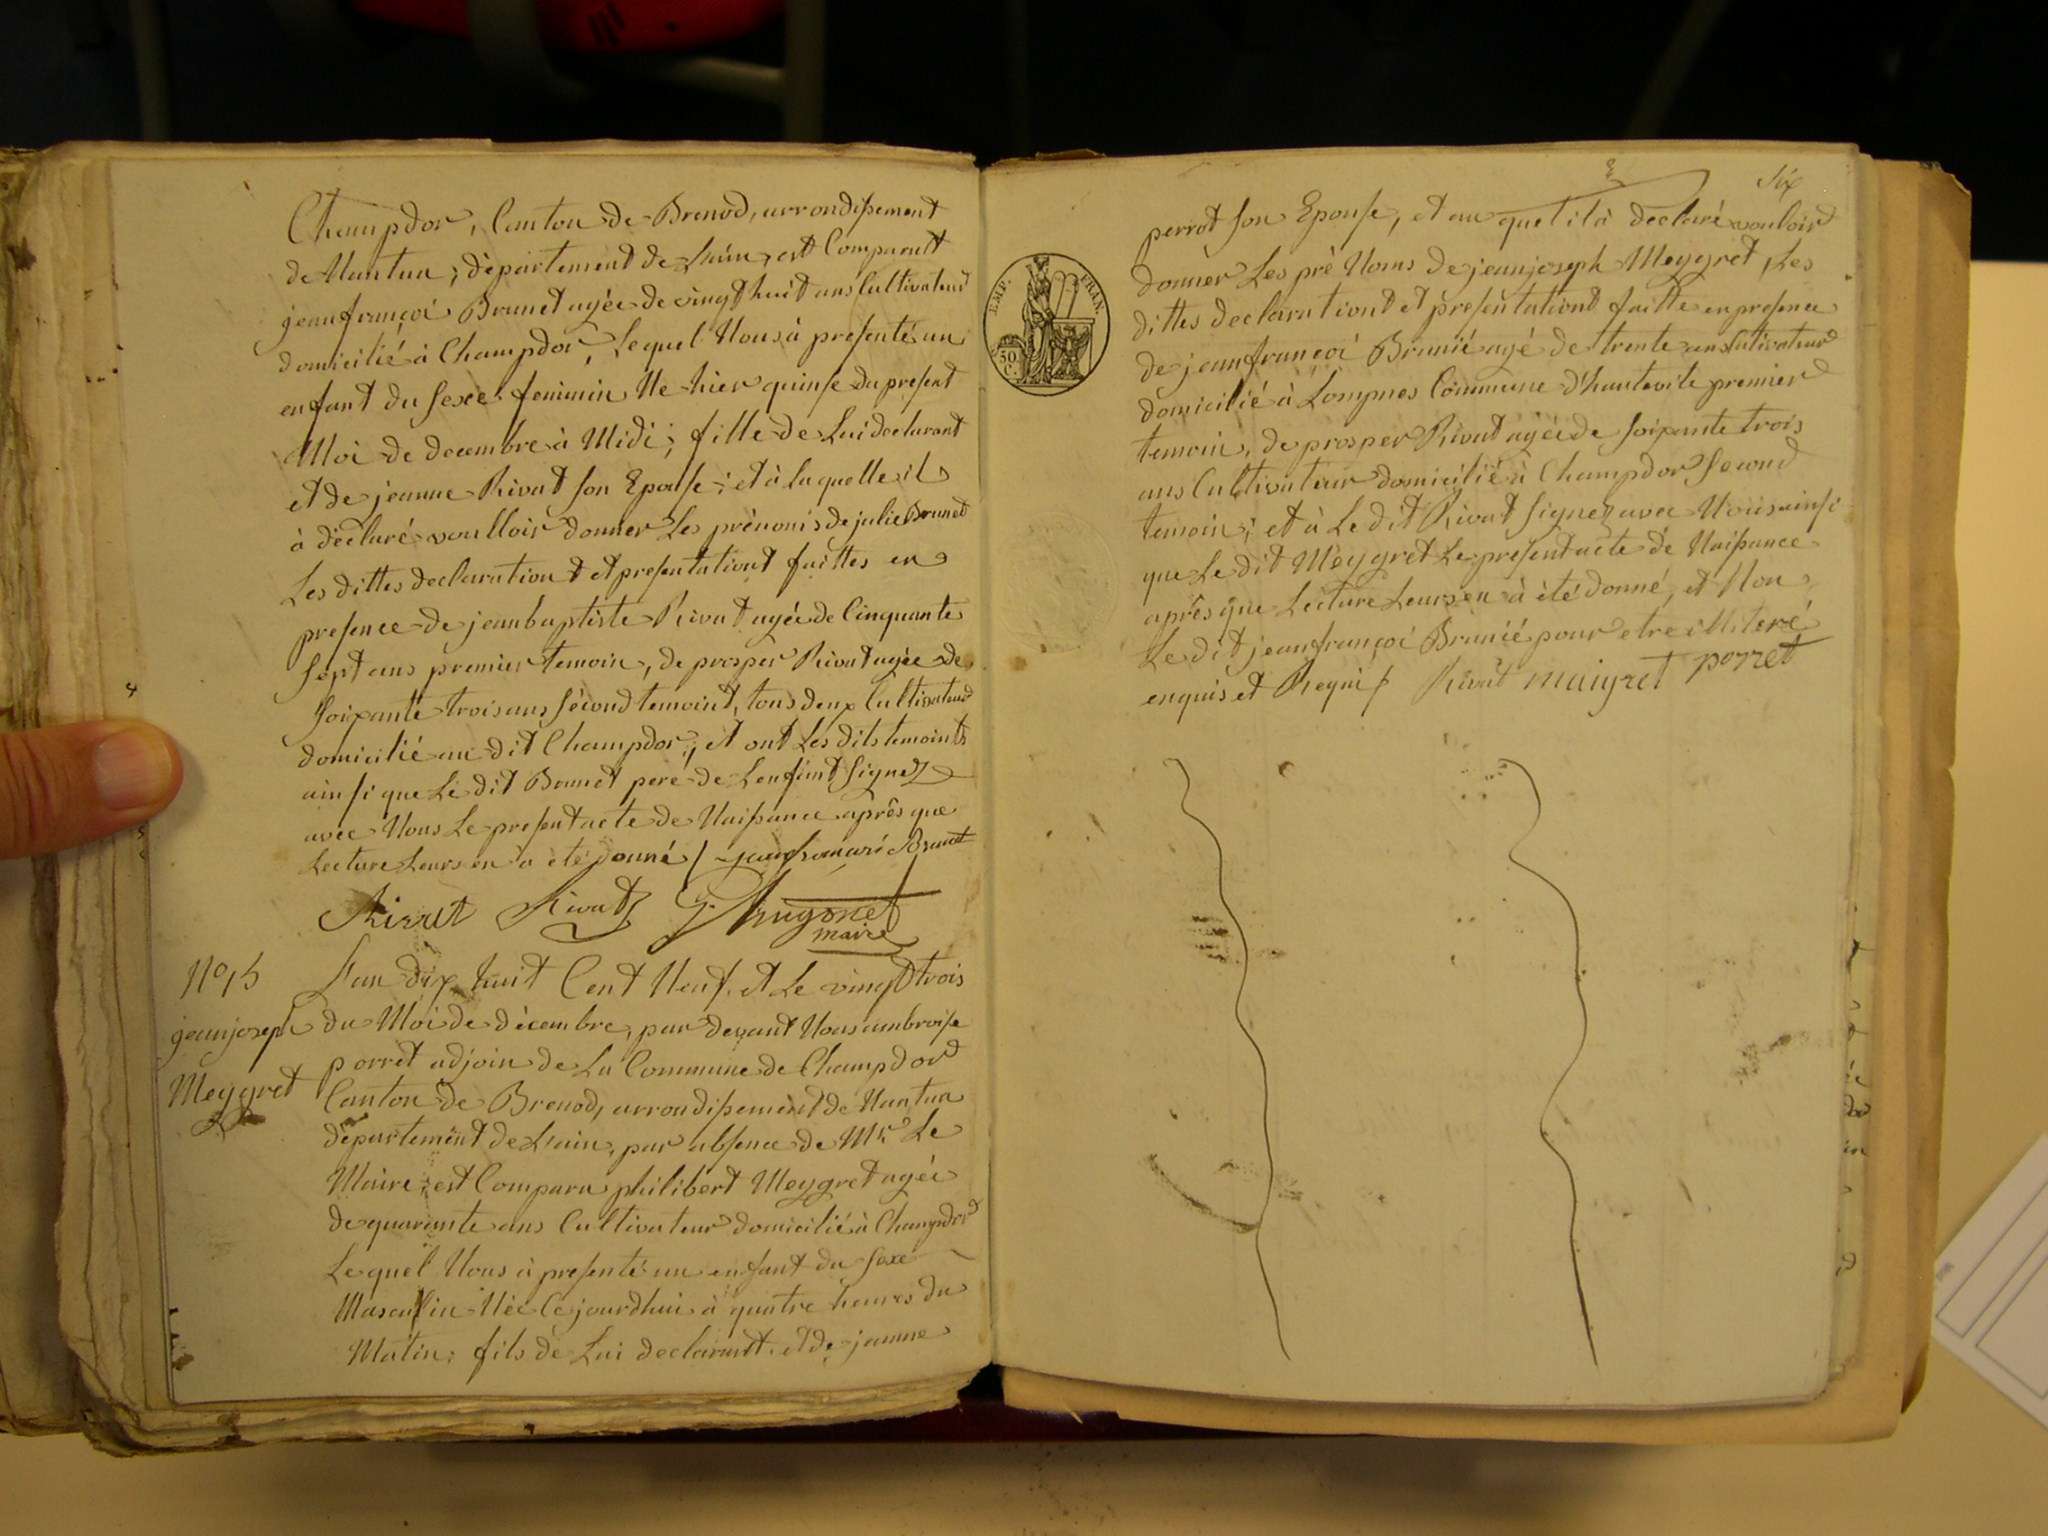 Champdor, Canton de Brenod, arrondissement
de Nantua, département de Lain, est Comparut
jeanfrançoi Brunet agée de vingt huit ans Cultivateur
domicilié à Champdor, Lequel Nous à presenté un
enfant du Sexe feminin Né hier quinse du present
Moi de decembre à Midi; fille de Lui declarant
et de jeanne Rivat son Epouse; et à la quelle il
à déclaré voulloir donner Les prénoms de julie Brunet
Les dittes declarationt et presentationt faittes en
presence de jeanbaptiste Rivat agée de Cinquante
Sept ans premier temoin, de prosper Rivat agée de
Soixante trois ans Sécond temoint, tous deux Cultivateur
domicilié au dit Champdor, et ont Les dits temoints
ainsi que Lé dit Bounet pere de Lenfant Signez
avec Nous Le present acte de Naissance après que
Lecture Leurs en a eté donné / jeanfrancoi Brunet
Rivat Rivat G. Hugonet
maire
N° 15
jeanjoseph
Meygret
Lan dix huit Cent Neuf et Le vingt trois
du Moi de décembre, par devant Nous ambroise
porret adjoin de La Commune de Champdor
Canton de Brenod, arrondissement de Nantua
département de Lain, par absence de Mr. Le
Maire; est Comparu philibert Meygret agée
de quarante ans Cultivateur domicilié à Champdor
Lequel Nous à presenté un enfant du sexe
Masculin Née Cejourdhui à quatre heures du
Matin; fils de Lui declarant et de jeanne
Six
perrot son Epouse, et au quel il à declaré vouloir
donner Les pré Noms de jeanjoseph Meygret, Les
dittes declarationt et presentationt faitte en presence
de jeanfrançoi Brunié agé de trente ans Cultivateur
domicilié à Lompnes Commune d'hautevile premier
temoin, de prosper Rivat agée de soixante trois
ans Cultivateur domicilié à Champdor Second
temoin; et à Le dit Rivat Signez avec Nous ainsi
que Le dit Meygret Le present acte de Naissance
après que Lecture Leurs en à été donné, et Non
Le dit jeanfrançoi Brunié pour etre illiteré
enquis et Requis / Rivat maigret porret
EMP. FRAN.
50 C.